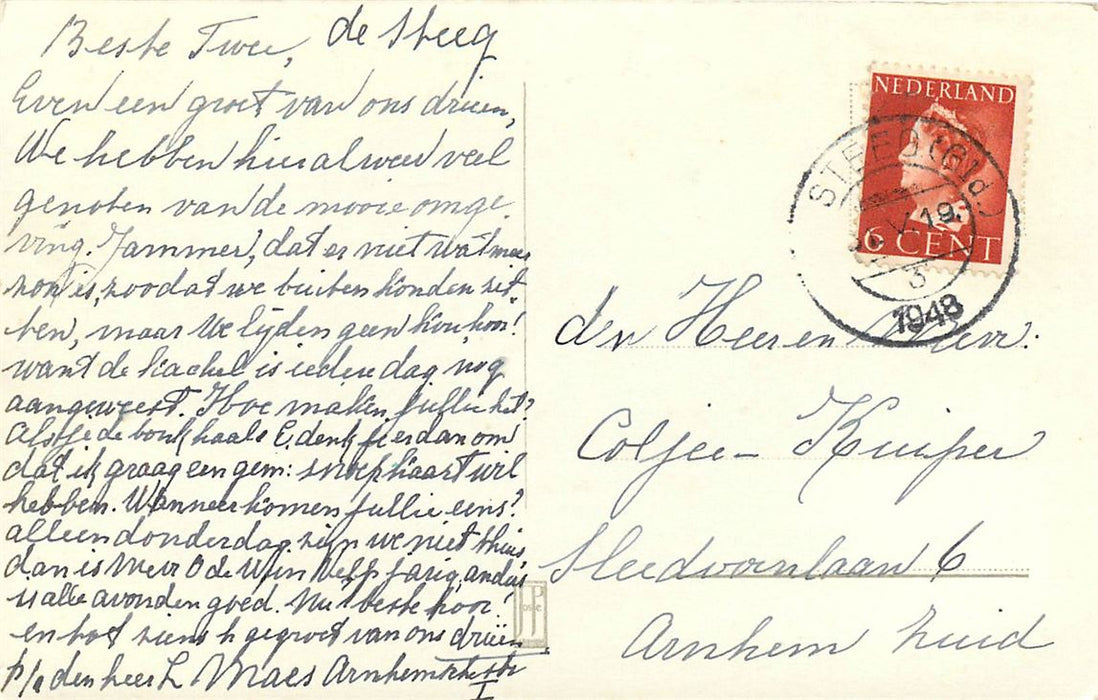 Beste Twee, de Steeg
Even een groet van ons drieën,
We hebben hier al weer veel
genoten van de mooie omge-
ving. Jammer, dat er niet wat meer
zon is, zoodat we buiten konden zit
ten, maar we lijden geen kou hoor!
want de kachel is iedere dag nog
aangeweest. Hoe maken jullie het?
Als je de bonk haalt denk je er dan om
dat ik graag een gem: snoepkaart wil
hebben. Wanneer komen jullie eens?
alleen donderdag zijn we niet thuis
dan is Mevr O de Wijn Velp jarig, anders
is alle avonden goed. Nu beste hoor!
en tot ziens h gegroet van ons drieën
p/a den heer L Maes Arnhemschestr
I
NEDERLAND
6 CENT
STEEG (Gld)
V 19
3
1948
den Heer en Mevr:
Coljee - Kuiper
Sleedoornlaan 6
Arnhem Zuid
JP
oste